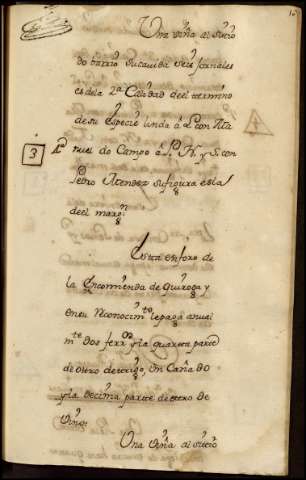 Una viña al sitio
do barrio su cavida seis jornales
es de la 2ª Calidad de el termino
de su especie linda á L. con Tita
3 P. nuel do Campo á P. N. y S. con
Pedro Atendez su figura es la
de el margn
Esta en foro de
la Encomienda de Quiroga y
en su Reconocimto le paga anual
mte dos ferros y la quarta parte
de otro de trigo, un Cañado
y la decima parte de otro de
Vino.
Una Viña al sitio